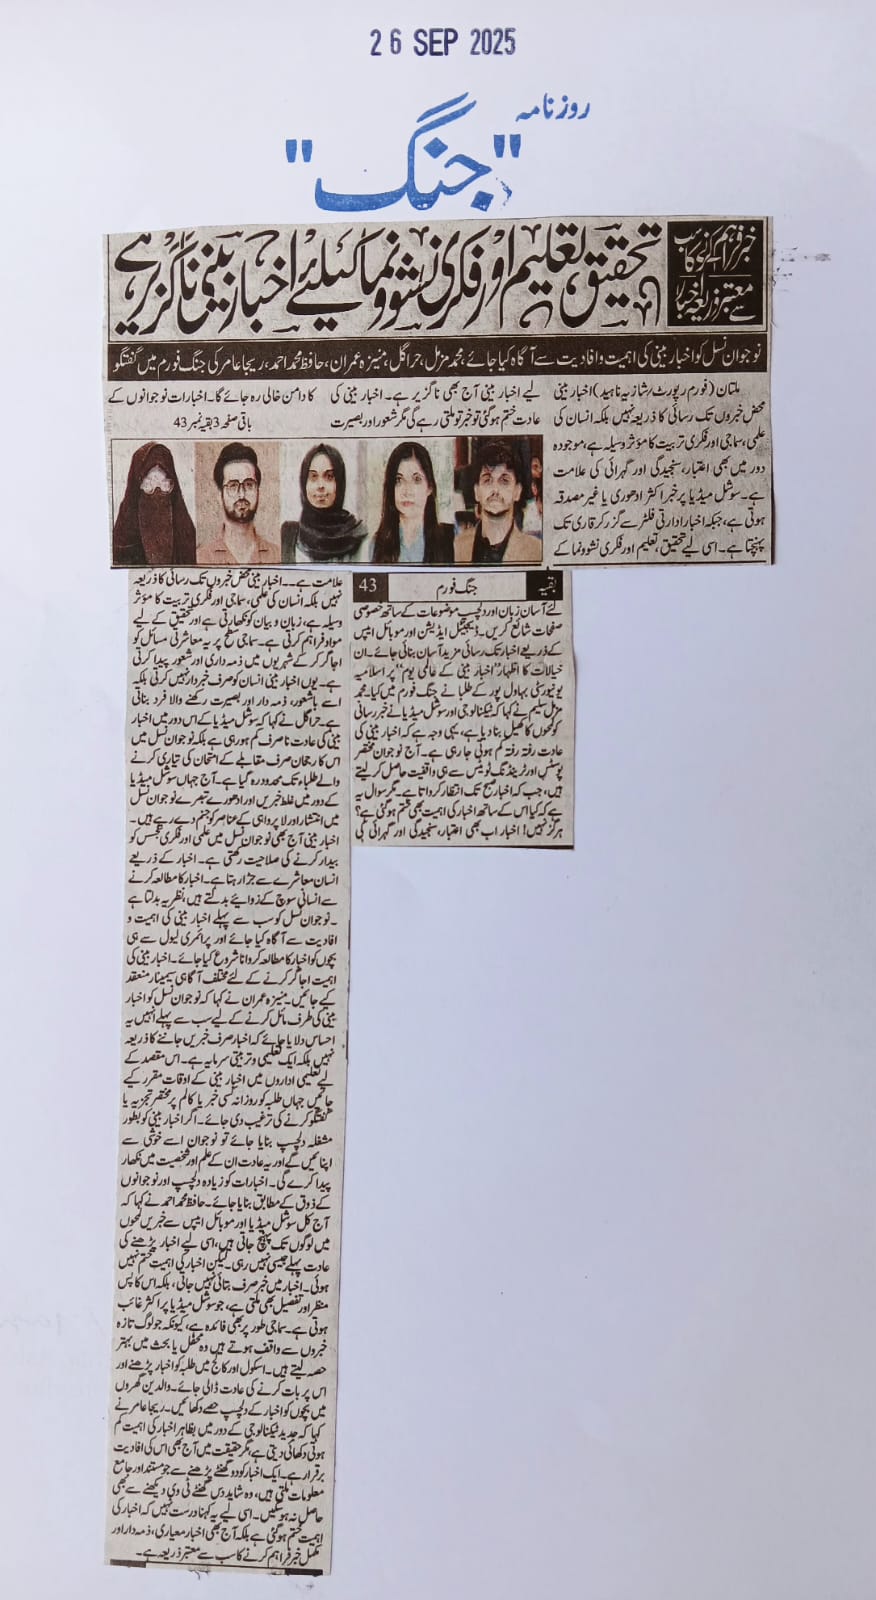 26 SEP 2025
روزنامہ
"جنگ"
خبر فراہم کرنے کا سب
سے معتبر ذریعہ اخبار
تحقیق، تعلیم اور فکری نشوونما کیلئے اخبار بینی ناگزیر ہے
نوجوان نسل کو اخبار بینی کی اہمیت و افادیت سے آگاہ کیا جائے، محمد مزمل، حرا گل، منیزہ عمران، حافظ محمد احمد، ریحا عامر کی جنگ فورم میں گفتگو
ملتان (فورم رپورٹ رشازیہ ناہید) اخبار بینی
محض خبروں تک رسائی کا ذریعہ نہیں بلکہ انسان کی
علمی، سماجی اور فکری تربیت کا مؤثر وسیلہ ہے، موجودہ
دور میں بھی اعتبار، سنجیدگی اور گہرائی کی علامت
ہے۔ سوشل میڈیا پر خبر اکثر ادھوری یا غیر مصدقہ
ہوتی ہے، جبکہ اخبار ادارتی فلٹر سے گزر کر قاری تک
پہنچتا ہے۔ اسی لیے تحقیق، تعلیم اور فکری نشوونما کے
لیے اخبار بینی آج بھی ناگزیر ہے۔ اخبار بینی کی
عادت ختم ہو گئی تو خبر تو ملتی رہے گی مگر شعور اور بصیرت
کا دامن خالی رہ جائے گا۔ اخبارات نوجوانوں کے
باقی صفحہ 3 بقیہ نمبر 43
بقیہ جنگ فورم 43
لئے آسان زبان اور دلچسپ موضوعات کے ساتھ خصوصی
صفحات شائع کریں۔ ڈیجیٹل ایڈیشن اور موبائل ایپس
کے ذریعے اخبار تک رسائی مزید آسان بنائی جائے۔ ان
خیالات کا اظہار "اخبار بینی کے عالمی یوم" پر اسلامیہ
یونیورسٹی بہاول پور کے طلبا نے جنگ فورم میں کیا۔ محمد
مزمل سلیم نے کہا کہ ٹیکنالوجی اور سوشل میڈیا نے خبر رسانی
کو لمحوں کا کھیل بنا دیا ہے، یہی وجہ ہے کہ اخبار بینی کی
عادت رفتہ رفتہ کم ہوتی جا رہی ہے۔ آج نوجوان مختصر
پوسٹس اور ٹرینڈنگ ٹویٹس سے ہی واقفیت حاصل کر لیتے
ہیں، جب کہ اخبار صبح تک انتظار کرواتا ہے۔ مگر سوال یہ
ہے کہ کیا اس کے ساتھ اخبار کی اہمیت بھی ختم ہو گئی ہے؟
ہرگز نہیں! اخبار اب بھی اعتبار، سنجیدگی اور گہرائی کی
علامت ہے۔۔ اخبار بینی محض خبروں تک رسائی کا ذریعہ
نہیں بلکہ انسان کی علمی، سماجی اور فکری تربیت کا مؤثر
وسیلہ ہے، زبان و بیان کو نکھارتی ہے اور تحقیق کے لیے
مواد فراہم کرتی ہے۔ سماجی سطح پر یہ معاشرتی مسائل کو
اجاگر کر کے شہریوں میں ذمہ داری اور شعور پیدا کرتی
ہے۔ یوں اخبار بینی انسان کو صرف خبردار نہیں کرتی بلکہ
اسے باشعور، ذمہ دار اور بصیرت رکھنے والا فرد بناتی
ہے۔ حرا گل نے کہا کہ سوشل میڈیا کے اس دور میں اخبار
بینی کی عادت نا صرف کم ہو رہی ہے بلکہ نوجوان نسل میں
اس کا رجحان صرف مقابلے کے امتحان کی تیاری کرنے
والے طلباء تک محدود رہ گیا ہے۔ آج جہاں سوشل میڈیا
کے دور میں غلط خبریں اور ادھورے تبصرے نوجوان نسل
میں انتشار اور لا پرواہی کے عناصر کو جنم دے رہے ہیں۔
اخبار بینی آج بھی نوجوان نسل میں علمی اور فکری تجسس کو
بیدار کرنے کی صلاحیت رکھتی ہے۔ اخبار کے ذریعے
انسان معاشرے سے جڑا رہتا ہے۔ اخبار کا مطالعہ کرنے
سے انسانی سوچ کے زوایئے بدلتے ہیں، نظریہ بدلتا ہے
۔ نوجوان نسل کو سب سے پہلے اخبار بینی کی اہمیت و
افادیت سے آگاہ کیا جائے اور پرائمری لیول سے ہی
بچوں کو اخبار کا مطالعہ کروانا شروع کیا جائے۔ اخبار بینی کی
اہمیت اجاگر کرنے کے لئے مختلف آگاہی سیمینار منعقد
کیے جائیں۔ منیزہ عمران نے کہا کہ نوجوان نسل کو اخبار
بینی کی طرف مائل کرنے کے لیے سب سے پہلے انہیں یہ
احساس دلایا جائے کہ اخبار صرف خبریں جاننے کا ذریعہ
نہیں بلکہ ایک تعلیمی و تربیتی سرمایہ ہے۔ اس مقصد کے
لیے تعلیمی اداروں میں اخبار بینی کے اوقات مقرر کیے
جائیں جہاں طلبہ کو روزانہ کسی خبر یا کالم پر مختصر تجزیہ یا
گفتگو کرنے کی ترغیب دی جائے۔ اگر اخبار بینی کو بطور
مشغلہ دلچسپ بنایا جائے تو نوجوان اسے خوشی سے
اپنائیں گے اور یہ عادت ان کے علم اور شخصیت میں نکھار
پیدا کرے گی۔ اخبارات کو زیادہ دلچسپ اور نوجوانوں
کے ذوق کے مطابق بنایا جائے۔ حافظ محمد احمد نے کہا کہ
آج کل سوشل میڈیا اور موبائل ایپس سے خبریں لمحوں
میں لوگوں تک پہنچ جاتی ہیں، اسی لیے اخبار پڑھنے کی
عادت پہلے جیسی نہیں رہی۔ لیکن اخبار کی اہمیت ختم نہیں
ہوئی۔ اخبار میں خبر صرف بتائی نہیں جاتی، بلکہ اس کا پس
منظر اور تفصیل بھی ملتی ہے، جو سوشل میڈیا پر اکثر غائب
ہوتی ہے۔ سماجی طور پر بھی فائدہ ہے، کیونکہ جو لوگ تازہ
خبروں سے واقف ہوتے ہیں وہ محفل یا بحث میں بہتر
حصہ لیتے ہیں۔ اسکول اور کالج میں طلبہ کو اخبار پڑھنے اور
اس پر بات کرنے کی عادت ڈالی جائے۔ والدین گھروں
میں بچوں کو اخبار کے دلچسپ حصے دکھائیں۔ ریحا عامر نے
کہا کہ جدید ٹیکنالوجی کے دور میں بظاہر اخبار کی اہمیت کم
ہوتی دکھائی دیتی ہے، مگر حقیقت میں آج بھی اس کی افادیت
برقرار ہے۔ ایک اخبار کو دو گھنٹے پڑھنے سے جو مستند اور جامع
معلومات ملتی ہیں، وہ شاید دس گھنٹے ٹی وی دیکھنے سے بھی
حاصل نہ ہو سکیں۔ اسی لیے یہ کہنا درست نہیں کہ اخبار کی
اہمیت ختم ہو گئی ہے بلکہ آج بھی اخبار معیاری، ذمہ دار اور
مکمل خبر فراہم کرنے کا سب سے معتبر ذریعہ ہے۔